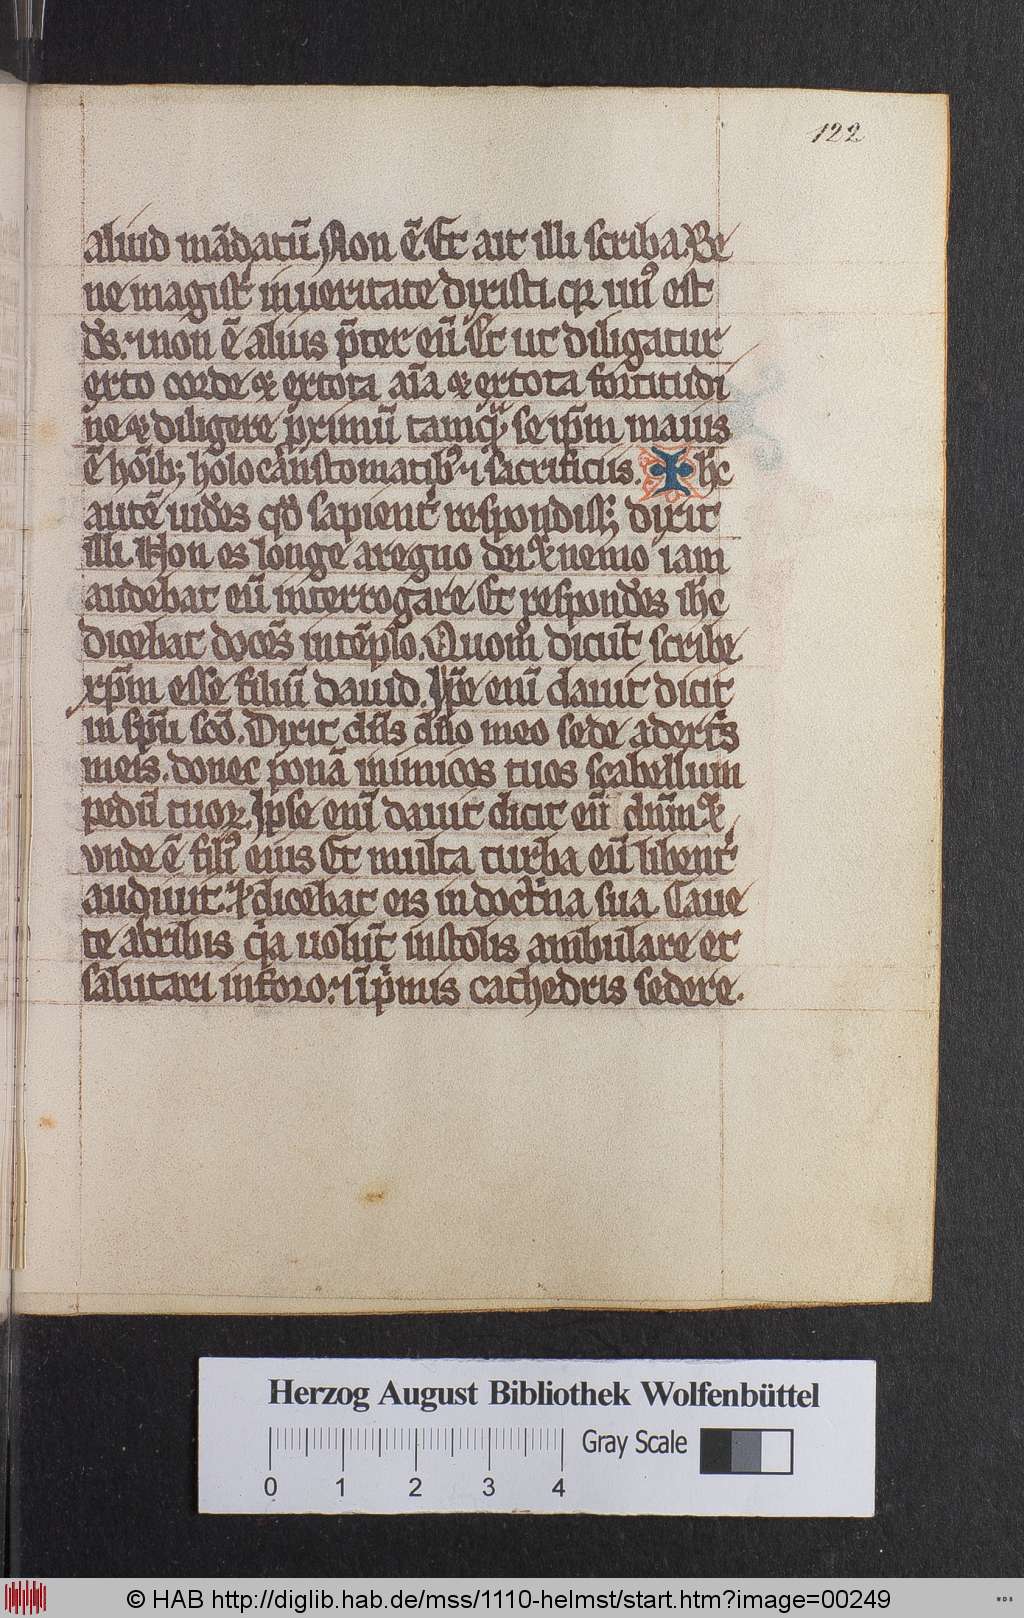 122
aliud mādatū. Non ē Et ait illi scriba. Be
ne magist̄ in ueritate dyxisti. qꝛ un⁹ est
dˢ. ⁊ non ē alius p̄ter eū. Et ut diligatur
exto corde ⁊ extota aīa ⁊ extota fortitudi
ne ⁊ diligere primū tamqͣ se ip̄m maius
ē hōib; holocaustomatib⁹ ⁊ sacrificiis. Ihc
autē uidēs qd̄ sapient̄ respondiss; dyxit
illi. Non es longe aregno dei ⁊ nemo iam
audebat eū interrogare. Et respondēs ihc
dicebat docēs intēplo. Quom̄ dicūt scribe
xp̄m esse filiū dauid. Ip̄e enī dauit dicit
in sp̄u sc̄o. Dixit dn̄s dn̄o meo sede adextˢ
meis. donec ponā inimicos tuos scabellum
pedū tuoꝝ. Ipse enī dauit dicit eū dn̄m ⁊
vnde ē fili⁹ eius Et multa turba eū libent̄
audiuit. ⁊ dicebat eis in doctⁱna sua. Caue
te ascribis qͥa uolūt in stolis ambulare et
salutari inforo. ⁊ ip̄mis cathedris sedere.
Herzog August Bibliothek Wolfenbüttel
0 1 2 3 4
Gray Scale
© HAB http://diglib.hab.de/mss/1110-helmst/start.htm?image=00249